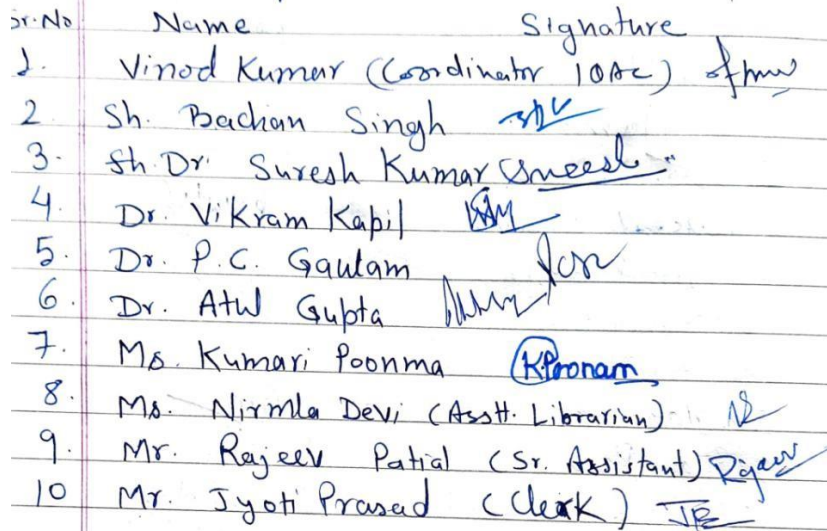 Sr. No Name Signature
1. Vinod Kumar (Coordinator IQAC)
2 Sh. Bachan Singh
3. Sh. Dr. Suresh Kumar Sureesh
4. Dr. Vikram Kapil
5. Dr. P.C. Gautam
6. Dr. Atul Gupta
7. Ms. Kumari Poonma K.Poonam
8. Ms. Nirmla Devi (Asstt. Librarian)
9. Mr. Rajeev Patial (Sr. Assistant) Rajeev
10 Mr. Jyoti Prasad (Clerk)